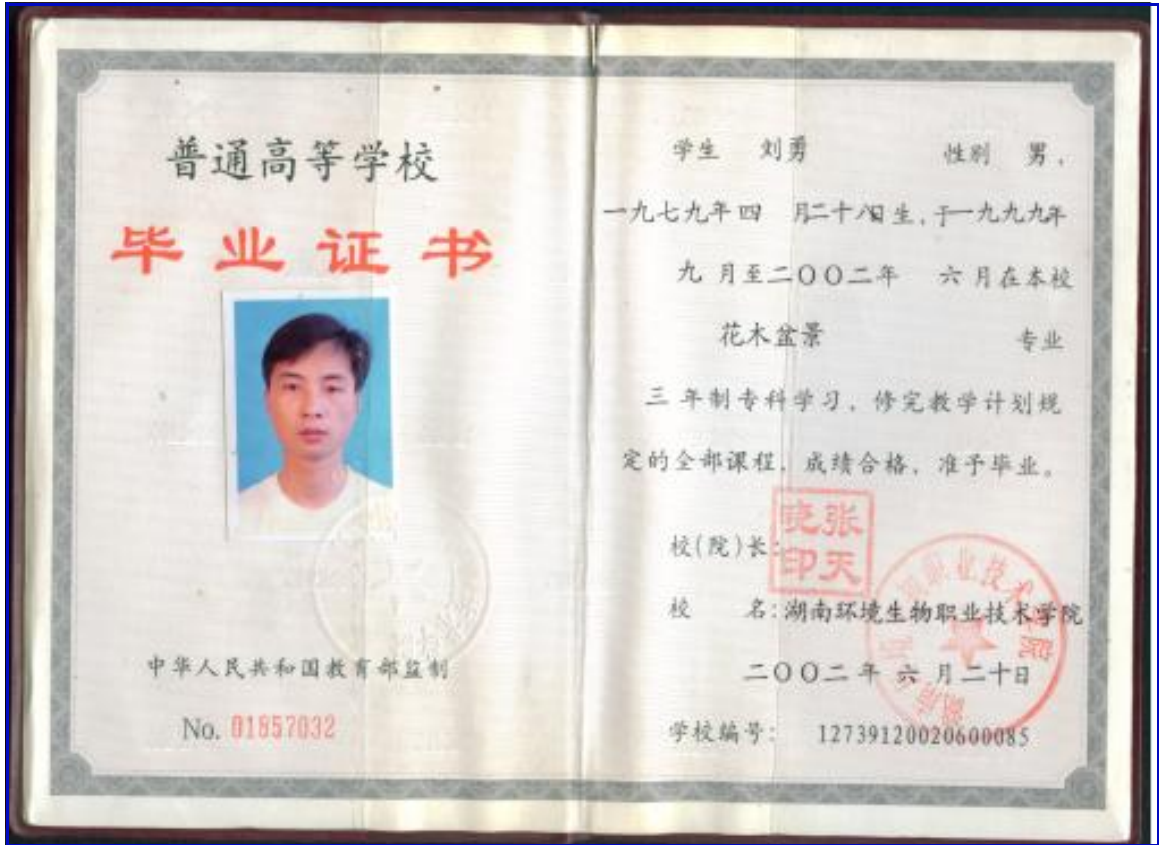 普通高等学校
毕业证书
中华人民共和国教育部监制
No. 01857032
学生 刘勇 性别 男，
一九七九年四 月二十八日生，于一九九九年
九 月至二〇〇二年 六 月在本校
花木盆景 专业
三 年制专科学习，修完教学计划规
定的全部课程，成绩合格，准予毕业。
校(院)长：
张天
晓印
校 名：湖南环境生物职业技术学院
二〇〇二年 六 月二十日
学校编号： 127391200206000085